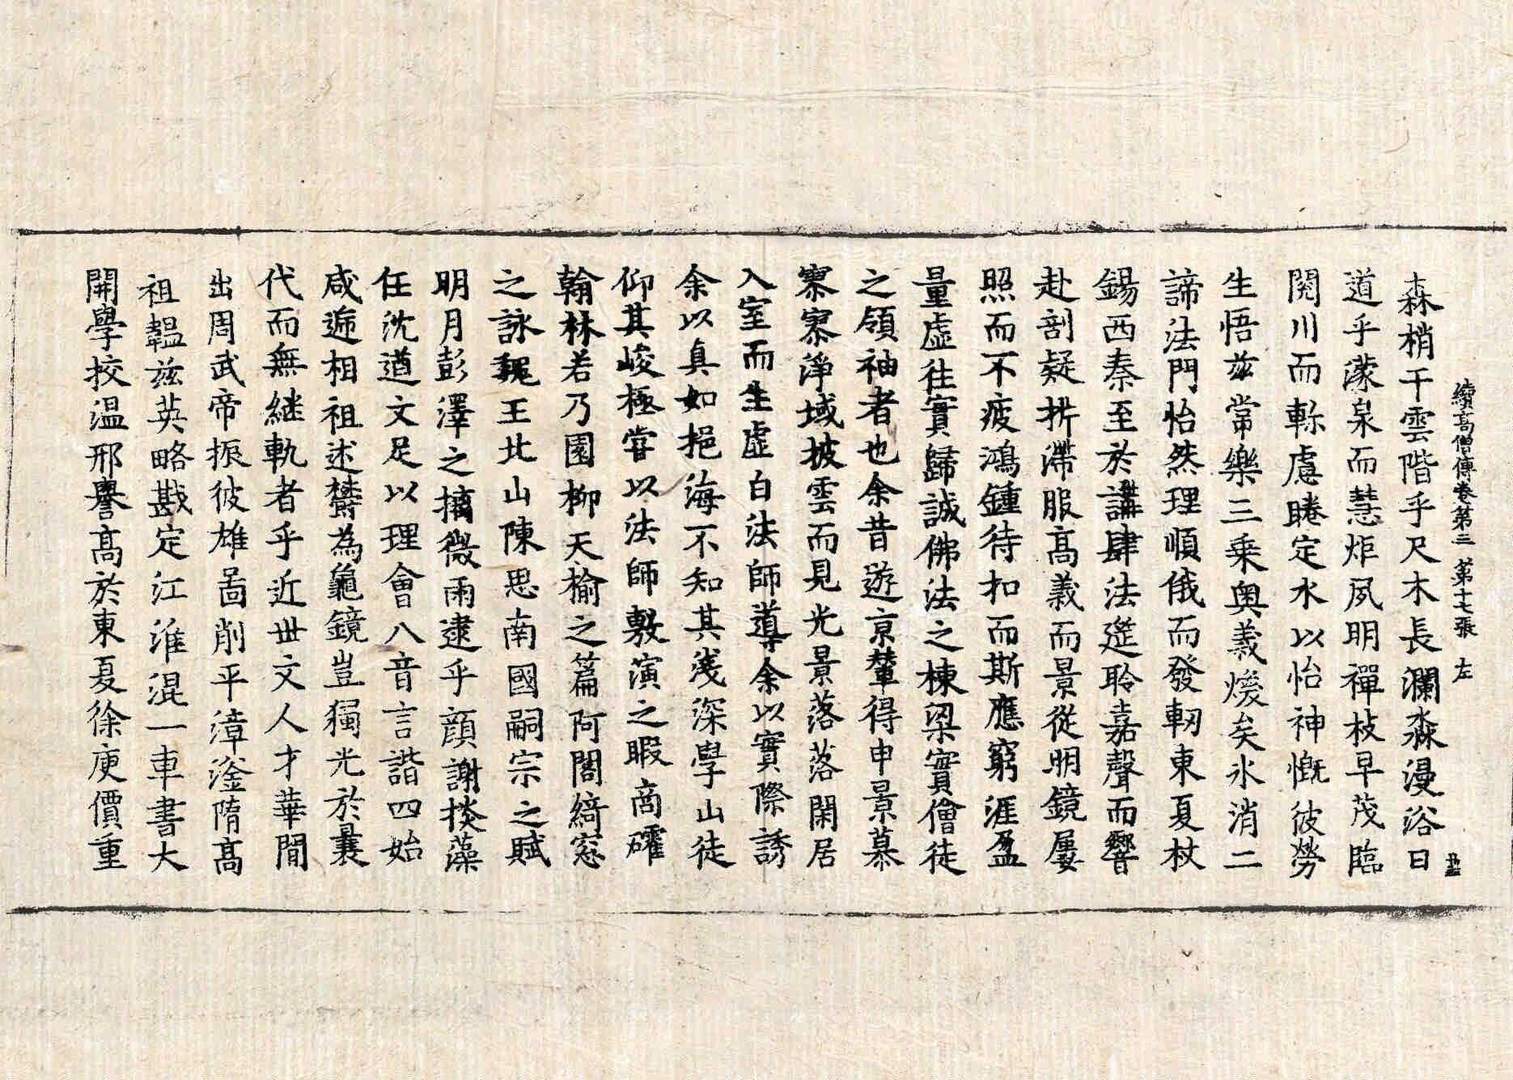 續高僧傳卷第三 第十七張 左
森梢干雲階乎尺木長瀾淼漫浴日
道乎濛泉而慧炬夙明禪枝早茂臨
閱川而軫慮睠定水以怡神慨彼勞
生悟玆常樂三乗奥義煥矣氷消二
諦法門怡然理順俄而發軔東夏杖
錫西秦至於講肆法筵聆嘉聲而響
赴剖疑折滯服髙義而景從明鏡屢
照而不疲鴻鍾待扣而斯應窮涯盈
量虛往實歸誠佛法之棟梁實僧徒
之領袖者也余昔遊京輦得申景慕
寮寀淨域披雲而見光景落落閑居
入室而生虛白法師導余以實際誘
余以真如挹海不知其淺深學山徒
仰其峻極嘗以法師敷演之暇商㩁
翰林若乃園柳天榆之篇阿閣綺窓
之詠魏王北山陳思南國嗣宗之賦
明月彭澤之摛微雨逮乎顔謝掞藻
任沈遒文足以理會八音言諧四始
咸遞相祖述欝為龜鏡豈獨光於曩
代而無継軌者乎近世文人才華閒
出周武帝振彼雄啚削平漳滏隋髙
祖韞兹英略戡定江淮混一車書大
開學挍温邢譽髙於東夏徐庾價重